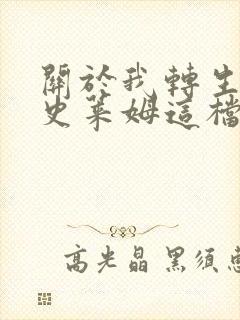 關於我轉生
史萊姆這檔
高光晶 黑須惠